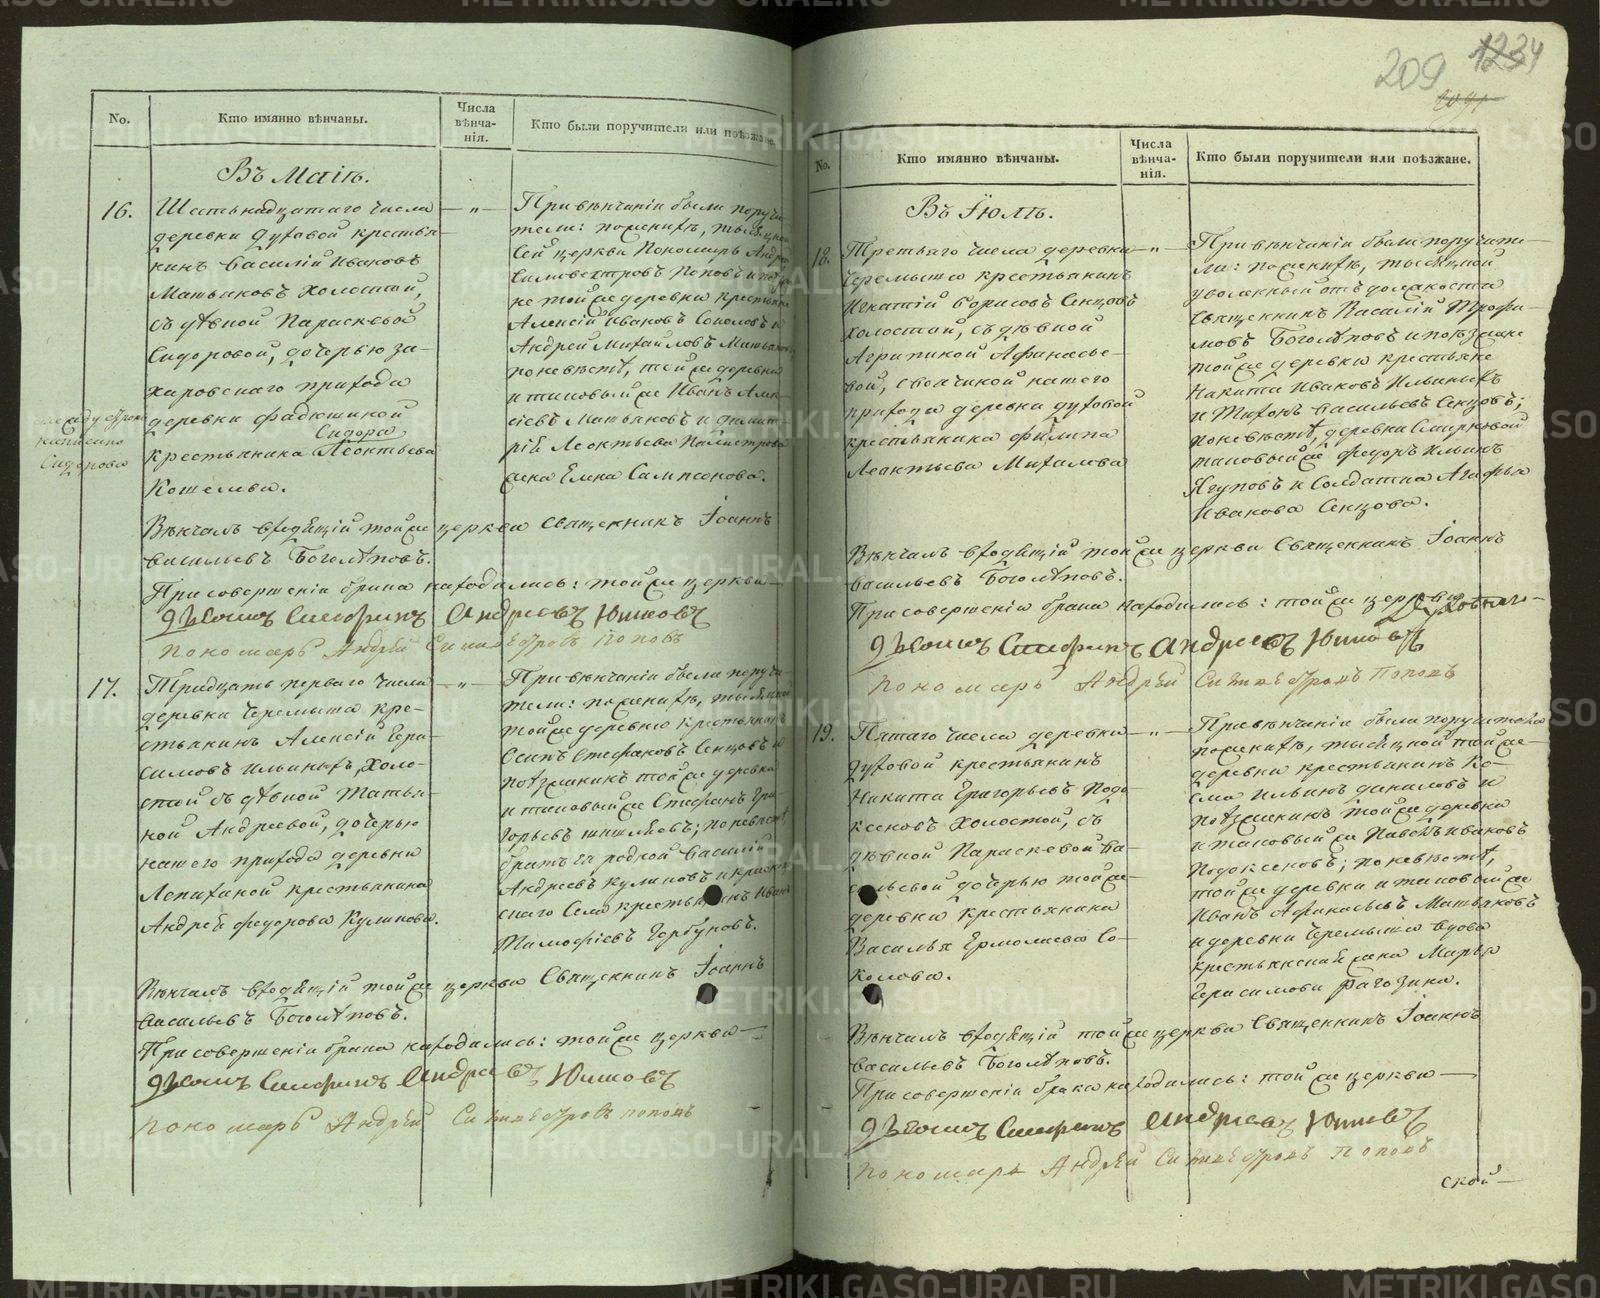 No.
Кто имянно вѣнчаны.
Числа
вѣнча-
нія.
Кто были поручители или поѣзжане.
Въ Маіѣ.
16.
Шатьнадцатаго числа
деревни Духовой крестья
нинъ Василій Ивановъ
Матьяковъ холостой,
съ дѣвкой Параскевой
Сидоровой, дочерью за-
харовскаго прихода
деревни Фадюшиной
Сидора
крестьянина Леонтьева
Кошелева.
написано
Сидорова
"
При вѣнчаніи были поручи
тели: по женихѣ, тысяцкой
сей церкви Пономарь Андрей
Сильвестровъ Поповъ и поѣзжа
не той же деревни крестьяне
Алексій Ивановъ Соколовъ и
Андрей Михайловъ Матьяковъ
по невѣстѣ, той же деревни
и таковый же Иванъ Алек
сіевъ Матьяковъ и Димит
рій Леонтьева
жена Елена Сампсонова.
Вѣнчалъ входящій той же церкви Священникъ Іоаннъ
Васильевъ Боголѣповъ.
При совершеніи брака находились: той же церкви
Дьячокъ Стефанъ Андреевъ Юшковъ
пономарь Андрей Сильвестровъ Поповъ
17.
Тридцать перваго числа
деревни Черемыша кре-
стьянинъ Алексій Гера-
симовъ Ильиныхъ, холо-
стой съ дѣвкой Татья-
ной Андреевой, дочерью
нашего прихода деревни
Лепихиной крестьянина
Андрея Федорова Куликова.
"
При вѣнчаніи были поручи
тели: по женихѣ, тысяцкой
той же деревни крестьянинъ
Осипъ Стефановъ Сенцовъ и
поѣзжанинъ той же деревни
и таковый же Стефанъ Гри
горьевъ Шишлевъ; по невѣстѣ
братъ ея родной Василій
Андреевъ Куликовъ и
скаго Села крестьянинъ Иванъ
Тимофіевъ Горбуновъ.
Вѣнчалъ входящій той же церкви Священникъ Іоаннъ
Васильевъ Боголѣповъ.
При совершеніи брака находились: той же церкви
Дьячокъ Стефанъ Андреевъ Юшковъ
пономарь Андрей Сильвестровъ Поповъ
209
1234
No.
Кто имянно вѣнчаны.
Числа
вѣнча-
нія.
Кто были поручители или поѣзжане.
Въ Іюлѣ.
18.
Третьяго числа деревни
Черемыша крестьянинъ
Игнатій Борисовъ Сенцовъ
холостой, съ дѣвкой
Агрипиной Афанасье-
вой, свояченой нашего
прихода деревни Духовой
крестьянина Филипа
Леонтьева Михалева
"
При вѣнчаніи были поручите-
ли: по женихѣ, тысяцкой
уволенный отъ должности
Священникъ Василій Трофи-
мовъ Боголѣповъ и поѣзжане
той же деревни крестьяне
Никита Ивановъ Ильиныхъ
и Тихонъ Васильевъ Сенцовъ;
по невѣстѣ, деревни Смирновой
таковый же Федоръ Ильинъ
Ягуповъ и Солдатка Агафья
Иванова Сенцова.
Вѣнчалъ входящій той же церкви Священникъ Іоаннъ
Васильевъ Боголѣповъ.
При совершеніи брака находились: той же церкви
Дьячокъ Стефанъ Андреевъ Юшковъ
пономарь Андрей Сильвестровъ Поповъ
19.
Пятаго числа деревни
Духовой крестьянинъ
Никита Григорьевъ Подо
ксеновъ холостой, съ
дѣвкой Параскевой Ва-
сильевой дочерью той же
деревни крестьянина
Василья Ермолаева Со-
колова.
"
При вѣнчаніи были поручители
по женихѣ, тысяцкой той же
деревни крестьянинъ Ко-
сма Ильинъ Даниловъ и
поѣзжанинъ той же деревни
и таковый же Павелъ Ивановъ
Подоксеновъ; по невѣстѣ,
той же деревни и таковый же
Иванъ Афанасьевъ Матьяковъ
и деревни Черемыша вдова
крестьянская жена Марья
Герасимова Рагозина.
Вѣнчалъ входящій той же церкви Священникъ Іоаннъ
Васильевъ Боголѣповъ.
При совершеніи брака находились: той же церкви
Дьячокъ Стефанъ Андреевъ Юшковъ
пономарь Андрей Сильвестровъ Поповъ
ской
METRIKI.GASO-URAL.RU